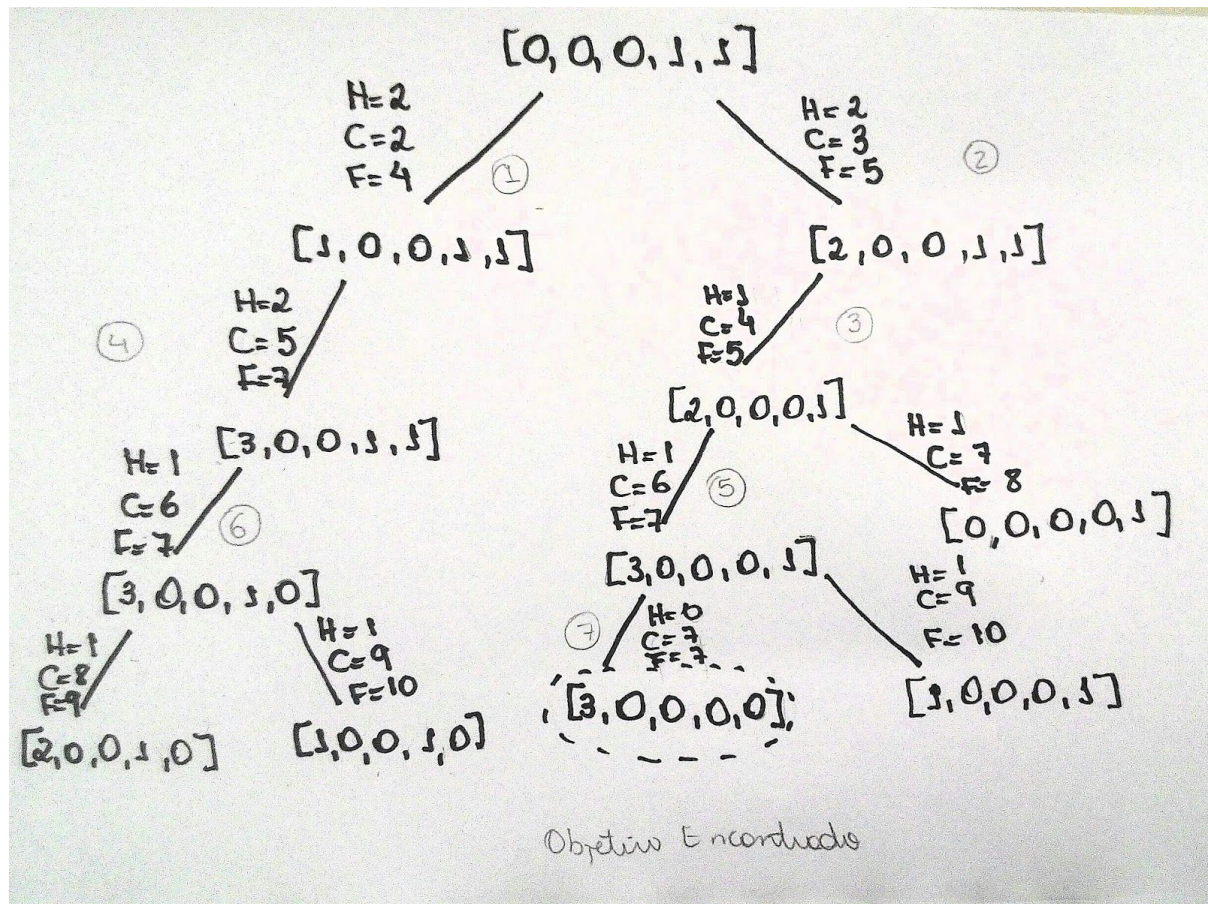 [0,0,0,1,1]
H=2
C=2
F=4
1
H=2
C=3
F=5
2
[1,0,0,1,1]
[2,0,0,1,1]
4
H=2
C=5
F=7
H=1
C=4
F=5
3
[3,0,0,1,1]
[2,0,0,0,1]
H=1
C=6
F=7
6
H=1
C=6
F=7
5
H=1
C=7
F=8
[0,0,0,0,1]
[3,0,0,1,0]
[3,0,0,0,1]
H=1
C=8
F=9
H=1
C=9
F=10
7
H=0
C=7
F=7
H=1
C=9
F=10
[2,0,0,1,0]
[1,0,0,1,0]
[3,0,0,0,0]
[1,0,0,0,1]
Objetivo Encontrado